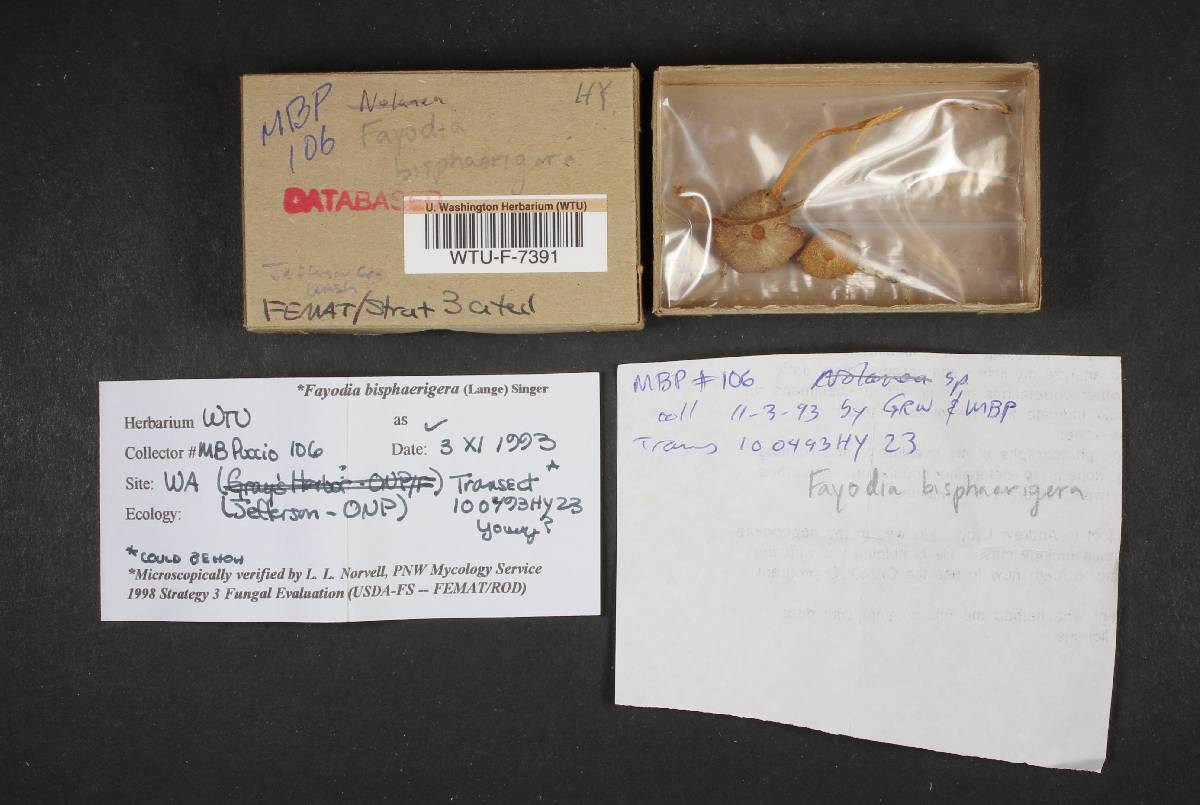 MBP
106
Nolanea
HY
Fayodia
bisphaerigera
DATABASED
U. Washington Herbarium (WTU)
WTU-F-7391
Jefferson Co.
WASH
FEMAT/Strat 3 cited
*Fayodia bisphaerigera (Lange) Singer
Herbarium WTU as ✓
Collector # MB Puccio 106 Date: 3 XI 1993
Site: WA (Grays Harbor - ONP/F) Transect *
Ecology: (Jefferson - ONP) 100493HY23
young?
*COULD BE HOH
*Microscopically verified by L. L. Norvell, PNW Mycology Service
1998 Strategy 3 Fungal Evaluation (USDA-FS -- FEMAT/ROD)
MBP # 106 Nolanea sp
coll 11-3-93 by GRW & MBP
Trans 100493HY 23
Fayodia bisphaerigera